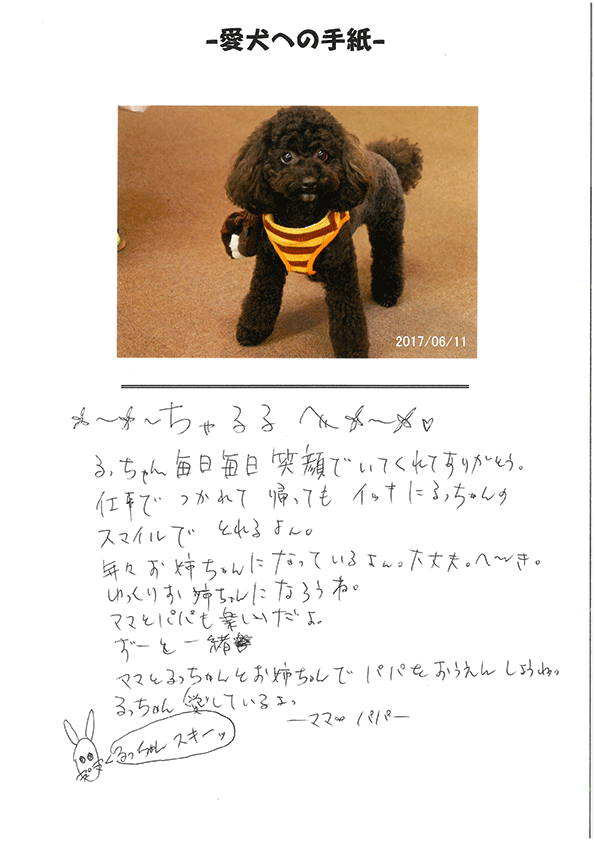 -愛犬への手紙-
2017/06/11
ちゃるる へ
るっちゃん 毎日毎日 笑顔でいてくれてありがとう。
仕事で つかれて 帰っても イッキにるっちゃんの
スマイルで とれるよん。
年々 お姉ちゃんになっているよん。大丈夫。へーき。
ゆっくりお姉ちゃんになろうね。
ママとパパも楽しいだよ。
ずーと一緒
ママとるっちゃんとお姉ちゃんで パパをおうえんしようねっ
るっちゃん 愛しているよっ
ーママ∞パパー
るっちゃん スキーッ